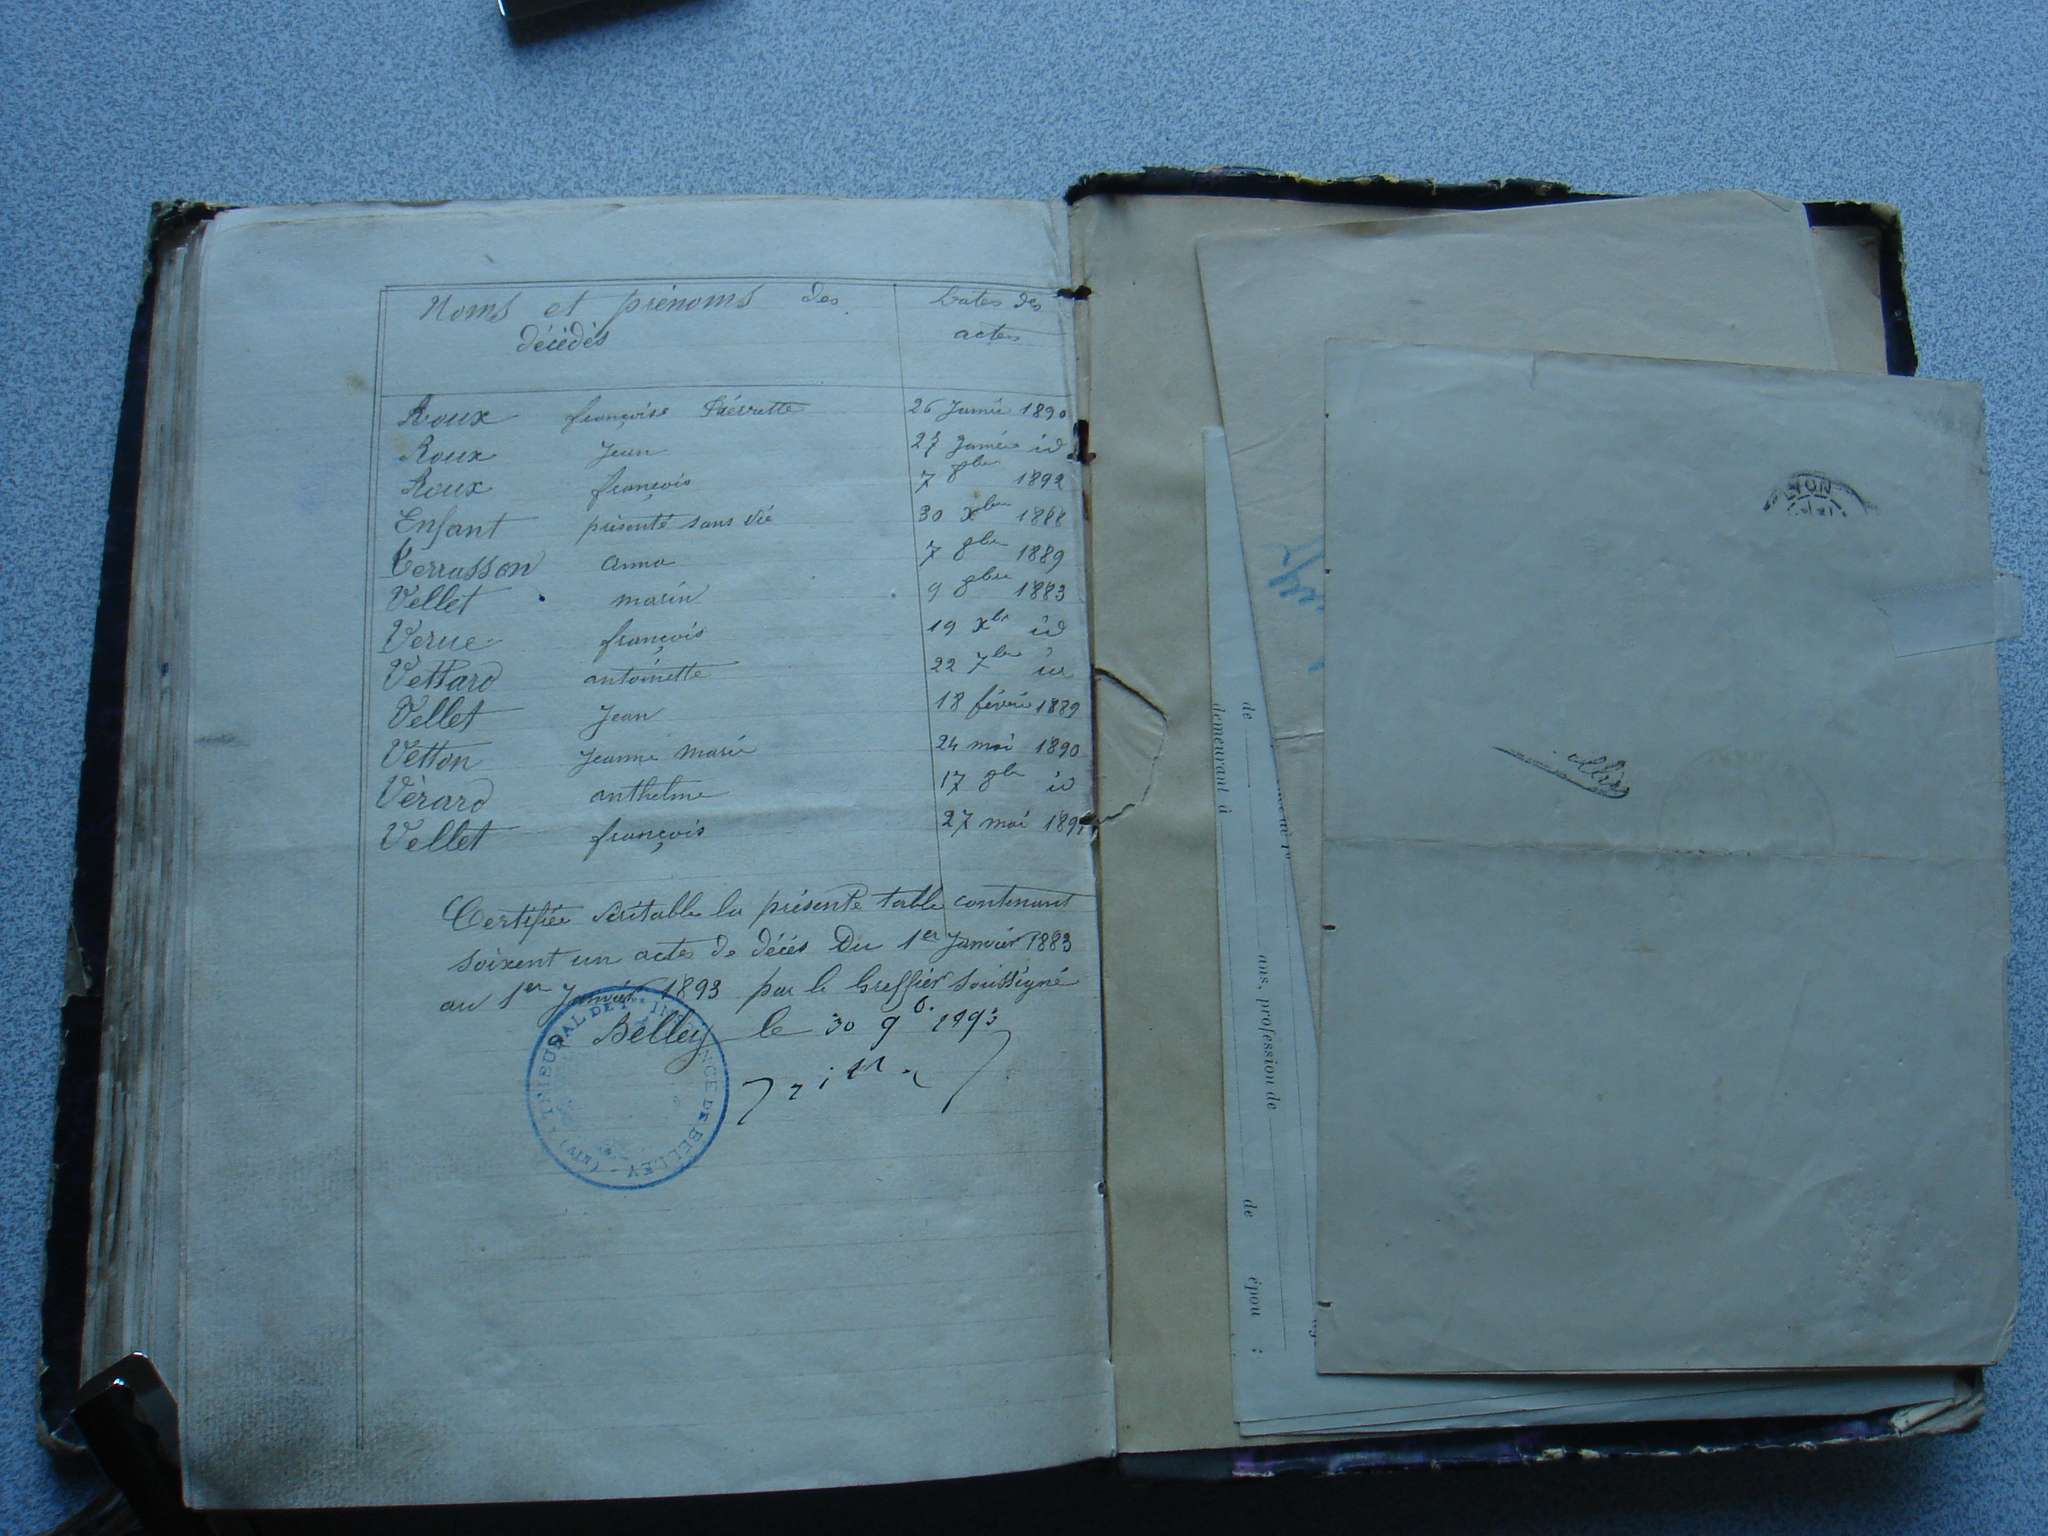 Noms et prénoms des
décédés
Dates des
actes
Roux françoise Pierrette 26 Janvier 1890
Roux Jean 27 Janvier id
Roux françois 7 8bre 1892
Enfant présenté sans vie 30 Xbre 1888
Terrasson anna 7 8bre 1889
Vellet marin 9 8bre 1883
Verue françois 19 Xbre id
Vettard antoinette 22 7bre id
Vellet Jean 18 février 1889
Vetton Jeanne Marie 24 mai 1890
Vérard anthelme 17 8bre id
Vellet françois 27 mai 1891
Certifiée véritable la présente table contenant
soixent un actes de décés Du 1er Janvier 1883
au 1er Janvier 1893 par le Greffier soussigné
Belley le 30 9b. 1893
DE BELLEY
LYON
de
demeurant à
ans, profession de
de
épou